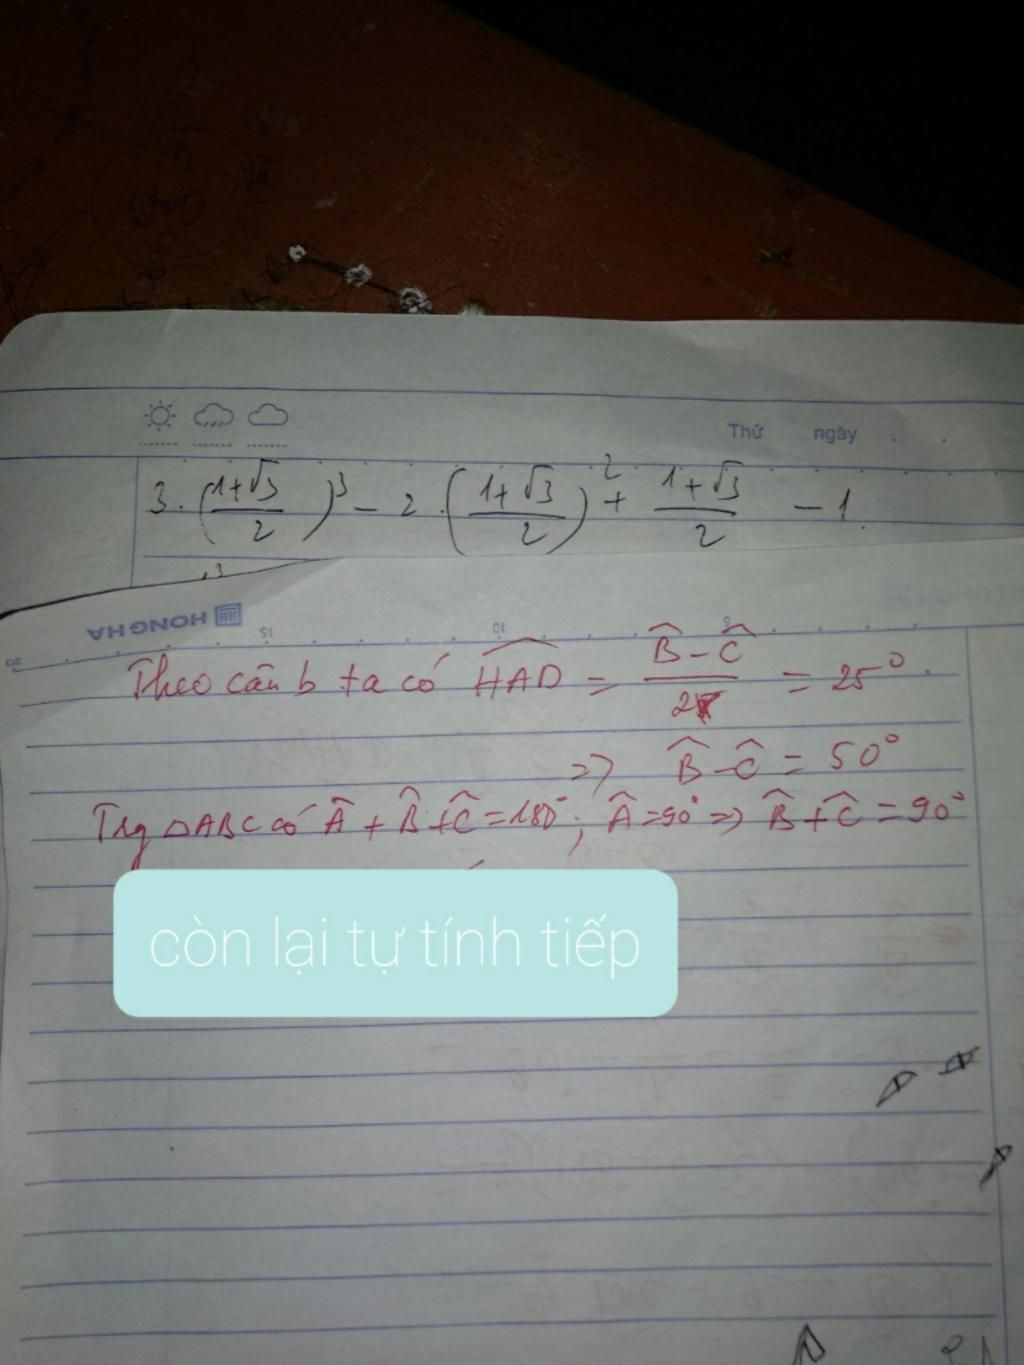 Thứ ngày
3. (1+√3/2)³ - 2. (1+√3/2)² + 1+√3/2 - 1
HONG HA
20 15 10 5
Theo câu b ta có HAD̂ = B̂-Ĉ/2 = 25°.
=> B̂-Ĉ = 50°
Trg △ABC có Â + B̂+Ĉ = 180°; Â=90° => B̂+Ĉ = 90°
còn lại tự tính tiếp